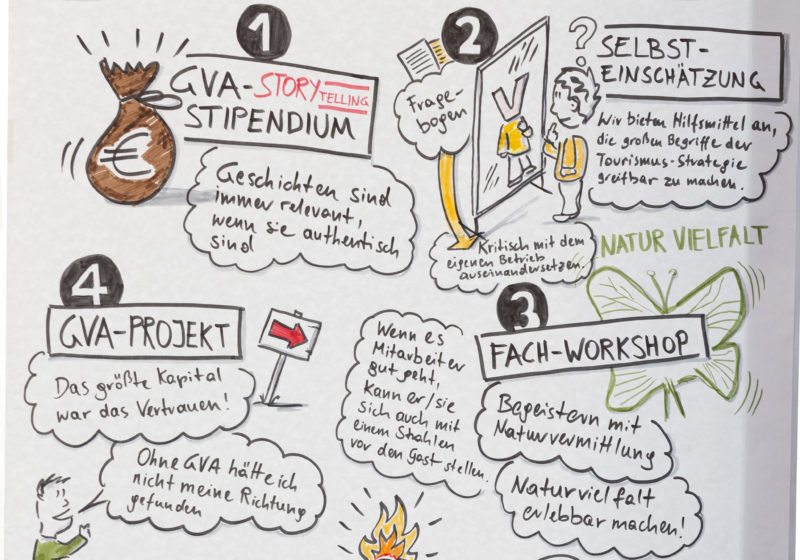 1
GVA-STORY
TELLING
STIPENDIUM
€
Geschichten sind
immer relevant,
wenn sie authentisch
sind
2
Frage-
bogen
?
V
Kritisch mit dem
eigenen Betrieb
auseinandersetzen.
SELBST-
EINSCHÄTZUNG
Wir bieten Hilfsmittel an,
die großen Begriffe der
Tourismus-Strategie
greifbar zu machen.
NATUR VIELFALT
3
FACH-WORKSHOP
Wenn es
Mitarbeiter
gut geht,
kann er/sie
sich auch mit
einem Strahlen
vor den Gast stellen.
Begeistern mit
Naturvermittlung
Naturvielfalt
erlebbar machen!
4
GVA-PROJEKT
Das größte Kapital
war das Vertrauen!
Ohne GVA hätte ich
nicht meine Richtung
gefunden